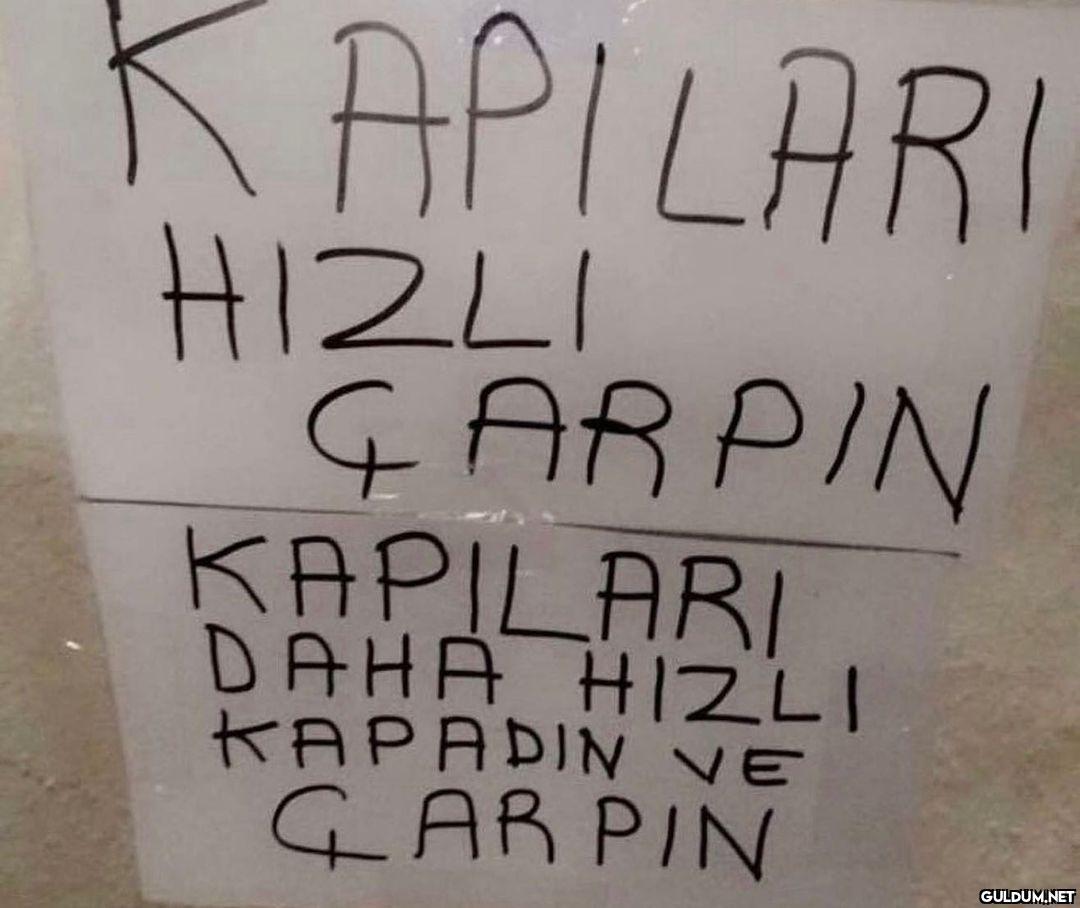 KAPILARI
HIZLI
ÇARPIN
KAPILARI
DAHA HIZLI
KAPADIN VE
ÇARPIN
GULDUM.NET